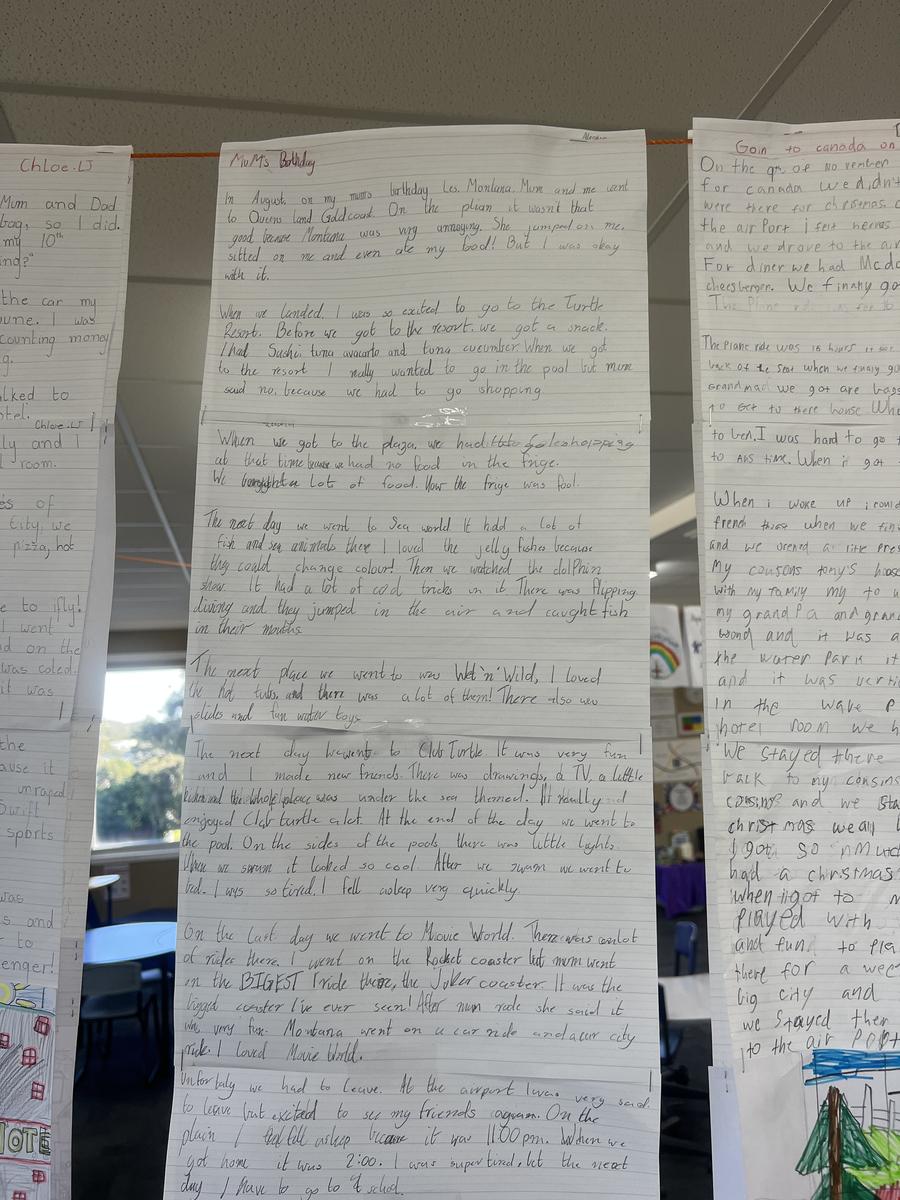 Chloe.LJ
Mum and Dad
bag, so I did.
my 10th
ing?"
the car my
une. I was
counting money
g.
alked to
otel.
Chloe.LJ
ly and I
room.
es of
city, we
pizza, hot
e to ifly!
I went
d on the
was coled.
it was
the
ause it
unraped
Swift
sports
was
s and
r to
enger!
HOTE
MuMs Birthday
In August, on my mums birthday Les, Montana, Mum and me went
to Queens land Gold coast. On the plean it wasn't that
good because Montana was very annoying. She jumped on me,
sitted on me and even ate my food! But I was okay
with it.
When we landed, I was so exited to go to the Turtle
Resort. Before we got to the resort, we got a snack.
I had Sushi, tuna avacarto and tuna cucumber When we got
to the resort I really wanted to go in the pool but mum
said no, because we had to go shopping.
When we got to the plaza, we had
at that time because we had no food in the frige.
We a lot of food. Now the frige was fool.
The next day we went to Sea world It had a lot of
fish and sea animals there I loved the jelly fishes because
they could change colour! Then we watched the dolphin
show. It had a lot of cool tricks in it. There was flipping
diving and they jumped in the air and caught fish
in their mouths.
The next place we went to was Wet'n'Wild, I loved
the hot tubs, and there was a lot of them! There also was
slides and fun water toys.
The next day we went to Club Turtle. It was very fun
and I made new friends. There was drawings, a TV, a little
and the whole place was under the sea themed. I really
enjoyed Club turtle alot. At the end of the day we went to
the pool. On the sides of the pools, there was little lights.
When we swum it looked so cool After we swam we went to
bed. I was so tired, I fell asleep very quickly.
On the last day we went to Movie World. There was alot
of rides there. I went on the Rocket coaster but mum went
on the BIGEST ride there, the Joker coaster. It was the
biggest coaster I've ever seen! After mum rode she said it
was very fun. Montana went on a car ride and a car city
ride. I loved Movie World.
Unfortaly we had to leave. At the airport I was very sad
to leave but excited to see my friends again. On the
plain I fell asleep because it was 11:00 pm. When we
got home it was 2:00. I was super tired, but the next
day I have to go to school.
Goin to canada on
On the 9th of November
for canada we didn't
were there for chrismas
the air Port i felt
and we drove to the air
For diner we had Mcdo
cheesbergen. We finally go
The Plane
The Plane ride was 15 hours it
back of the seat when we finally
grandmad we got are bags
to get to there house Whe
to ben, I was hard to go t
to time. When i got
When i woke up i
frend when we
and we opened a litte pres
My cousons tony's house
with my family my to u
my grandpa and gran
wond and it was a
the water Park it
and it was verti
In the wave p
hotel room we h
We stayed there
back to my cousins
cousins and we sta
christmas we all
I got so much
had a christmas
when i got to
played with
and fun. to pla
there for a wee
big city and
we stayed ther
to the air PoPt